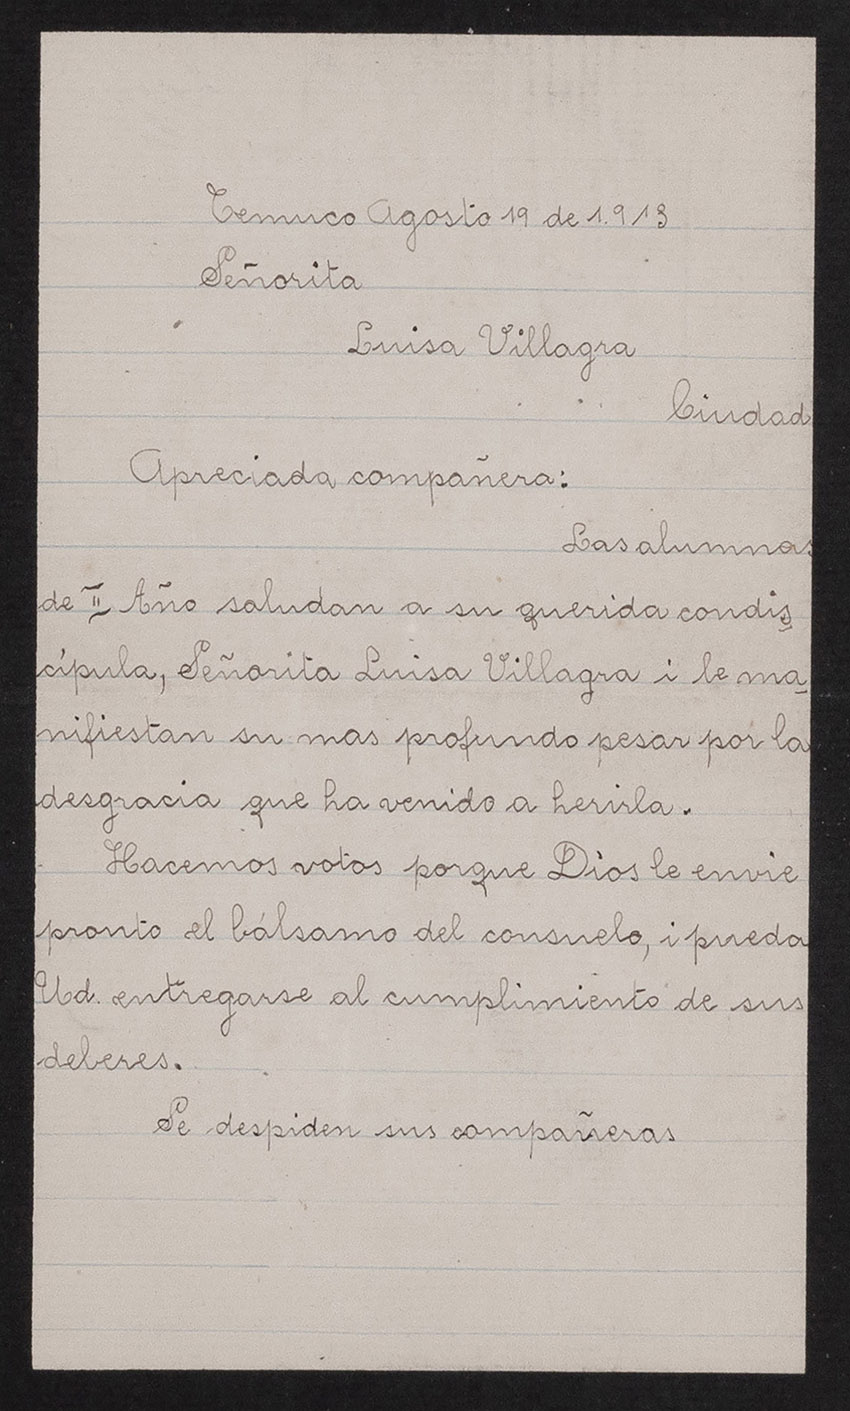 Temuco Agosto 19 de 1.913
Señorita
Luisa Villagra
Ciudad
Apreciada compañera:
Las alumnas
de II Año saludan a su querida condis
cípula, Señorita Luisa Villagra i le ma
nifiestan su mas profundo pesar por la
desgracia que ha venido a herirla.
Hacemos votos porque Dios le envie
pronto el bálsamo del consuelo, i pueda
Ud. entregarse al cumplimiento de sus
deberes.
Se despiden sus compañeras